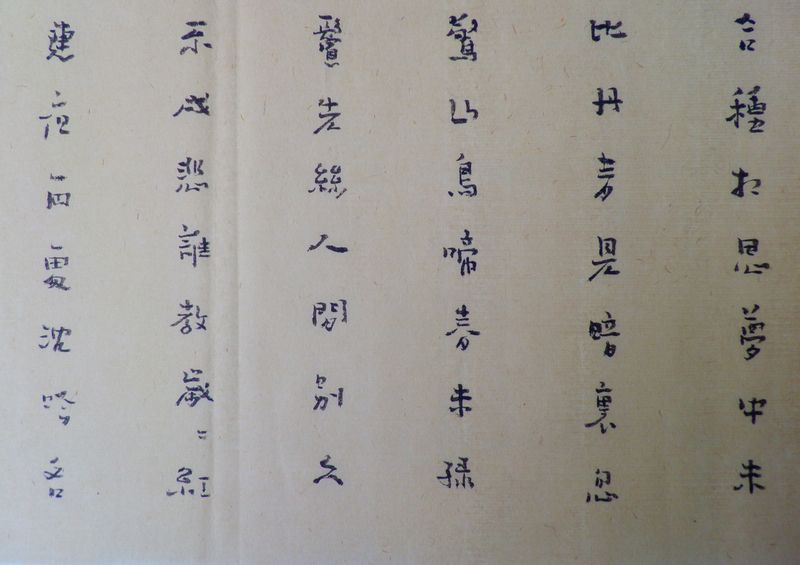 合種相思夢中未
比丹青見暗裏忽
驚山鳥啼春未綠
鬢先絲人間別久
不成悲誰教歲〻紅
蓮夜兩處沈吟各